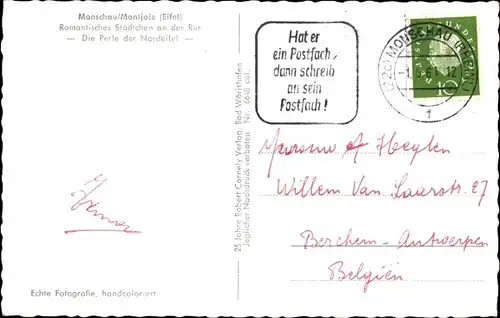 Monschau/Montjoie (Eifel)
Romantisches Städtchen an der Rur
— Die Perle der Nordeifel —
Hat er
ein Postfach,
dann schreib
an sein
Postfach!
(22c) MONSCHAU (EIFEL)
61. 12
1
BUNDES
10
25 Jahre Robert Cornely Verlag, Bad Wörishofen
Jeglicher Nachdruck verboten Nr. (6/8 col.
Willem Van Laarstr. 27
Berchem-Antwerpen
Belgien
Echte Fotografie, handcoloriert